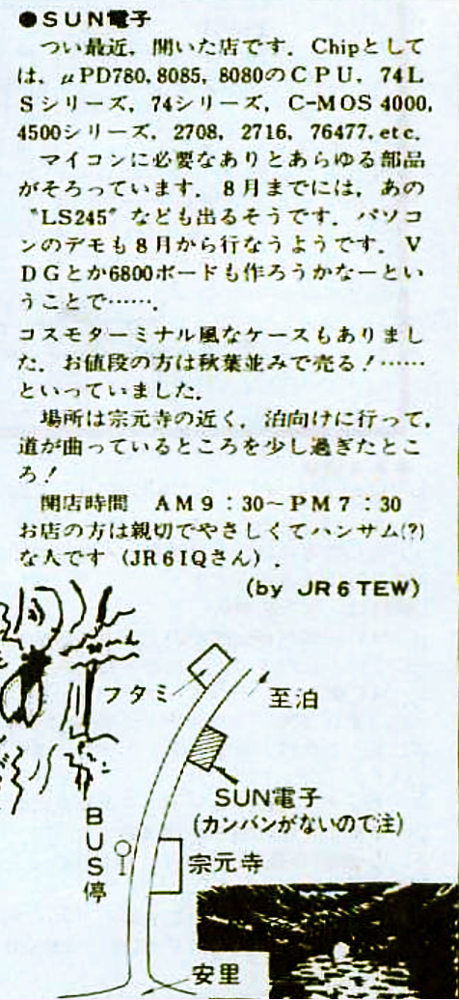 ●SUN電子
つい最近，開いた店です．Chipとして
は，μPD780，8085，8080のCPU，74L
Sシリーズ，74シリーズ，C-MOS 4000，
4500シリーズ，2708，2716，76477，etc．
マイコンに必要なありとあらゆる部品
がそろっています．8月までには，あの
〝LS245〞なども出るそうです．パソコ
ンのデモも8月から行なうようです．V
DGとか6800ボードも作ろうかなーとい
うことで……．
コスモターミナル風なケースもありまし
た．お値段の方は秋葉並みで売る！……
といっていました．
場所は宗元寺の近く，泊向けに行って，
道が曲っているところを少し過ぎたとこ
ろ！
開店時間　AM9：30～PM7：30
お店の方は親切でやさしくてハンサム(?)
な人です（JR6IQさん）．
(by JR6TEW)
フタミ
至泊
SUN電子
(カンバンがないので注)
BUS停
宗元寺
安里